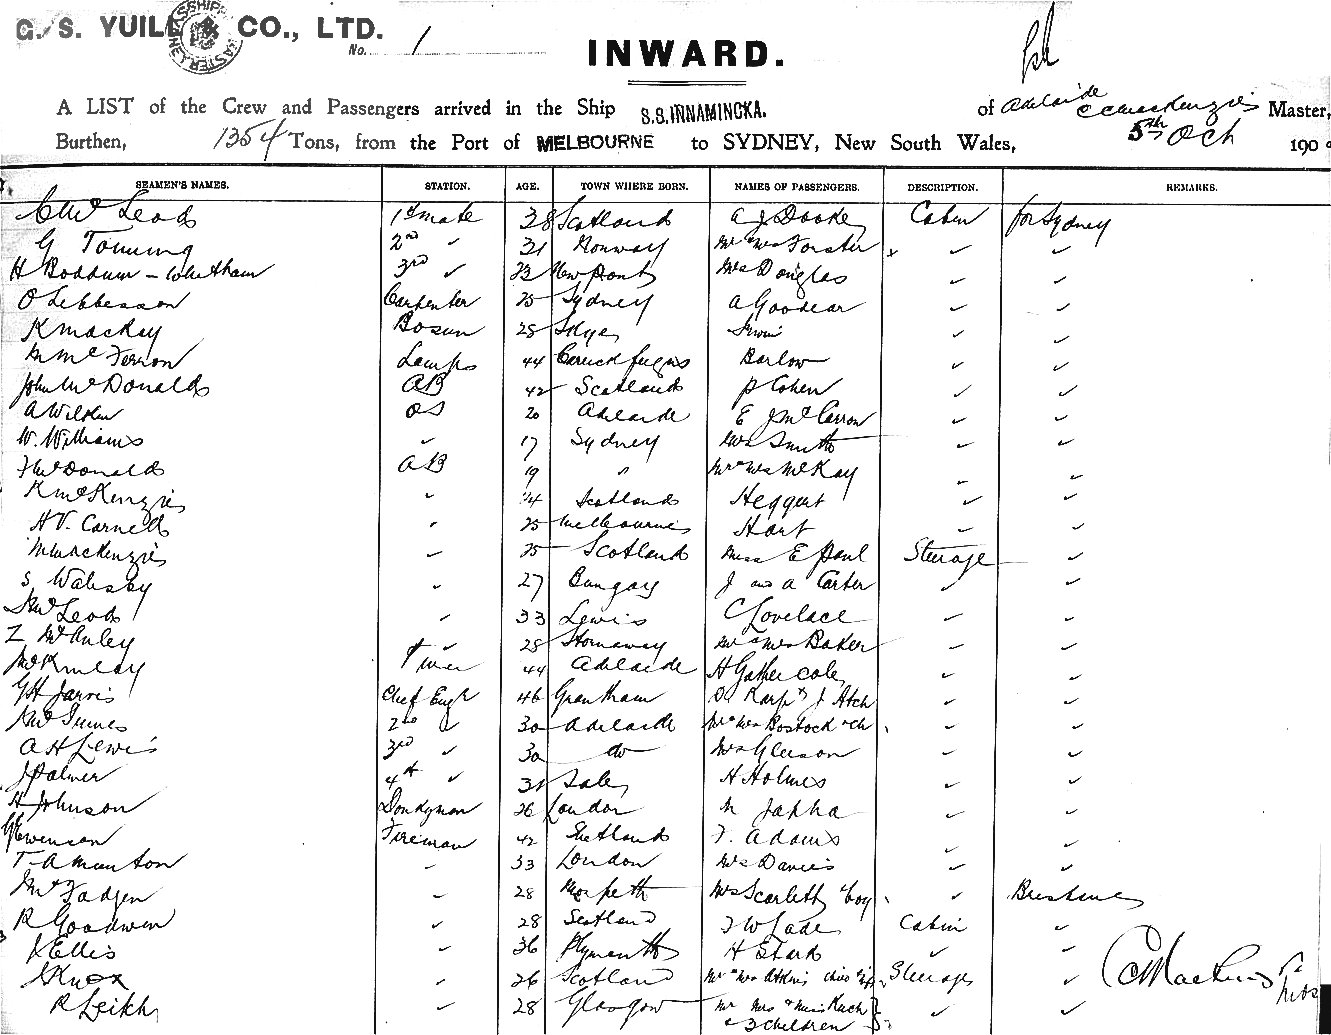 G. S. YUILL & CO., LTD.
No. 1
INWARD.
A LIST of the Crew and Passengers arrived in the Ship S.S. INNAMINCKA. of Adelaide C Mackenzie Master,
Burthen, 1354 Tons, from the Port of MELBOURNE to SYDNEY, New South Wales, 5th Oct 190
SEAMEN'S NAMES. STATION. AGE. TOWN WHERE BORN. NAMES OF PASSENGERS. DESCRIPTION. REMARKS.
McLeod 1st mate 38 Scotland A J Cabin for Sydney
G 2nd " 31 Norway Mr & Mrs Forster
H Boddum-Whetham 3rd 23 Newport Mrs Douglas
O Carpenter 25 Sydney A Goodear
K Mackay Bosun 28 Skye Irwin
McFerron Lamps 44 Carrickfergus Barlow
John McDonald AB 42 Scotland P Cohen
A Wilkin OS 20 Adelaide E J McCarron
W. Williams 17 Sydney Mrs Smith
McDonald AB 19 " Mr & Mrs McKay
K McKenzie 24 Scotland Heggart
H V. Carnell 25 Melbourne Hart
M Mackenzie 25 Scotland Miss E Paul Steerage
S Walisby 27 Bungay J and A Carter
McLeod 33 Lewis C Lovelace
Z McAuley 28 Stornaway Mr & Mrs Baker
McKinlay 44 Adelaide H Gathercole
G H Jarvis Chief Engr 46 Grantham J Atch
McInnes 2nd 30 Adelaide Mr & Mrs Bostock & ch
A H Lewis 3rd 30 do Mrs Gleeson
J Palmer 4th 31 Sale H Holmes
H Johnson Donkeyman 26 London M Japha
Evenson Fireman 42 Shetland F. Adams
T A Manton 33 London Mrs Davies
McFadgen 28 Morpeth Mrs Scarlett & boy Brisbane
R Goodwin 28 Scotland J W Lade Cabin
J Ellis 36 Plymouth H Stark
Knox 26 Scotland Mr & Mrs Atkins Steerage
R Leikh 28 Glasgow Mr Mrs & Miss
& 3 children